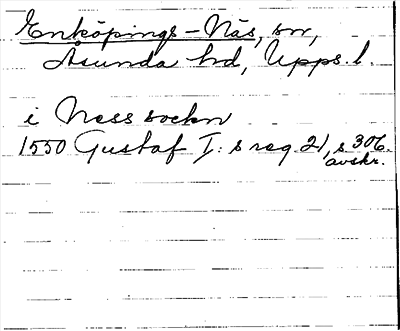 Enköpings-Näs, sn,
Åsunda hd, Upps. l.
i Ness sockn
1550 Gustaf I: s reg 21, s 306.
avskr.